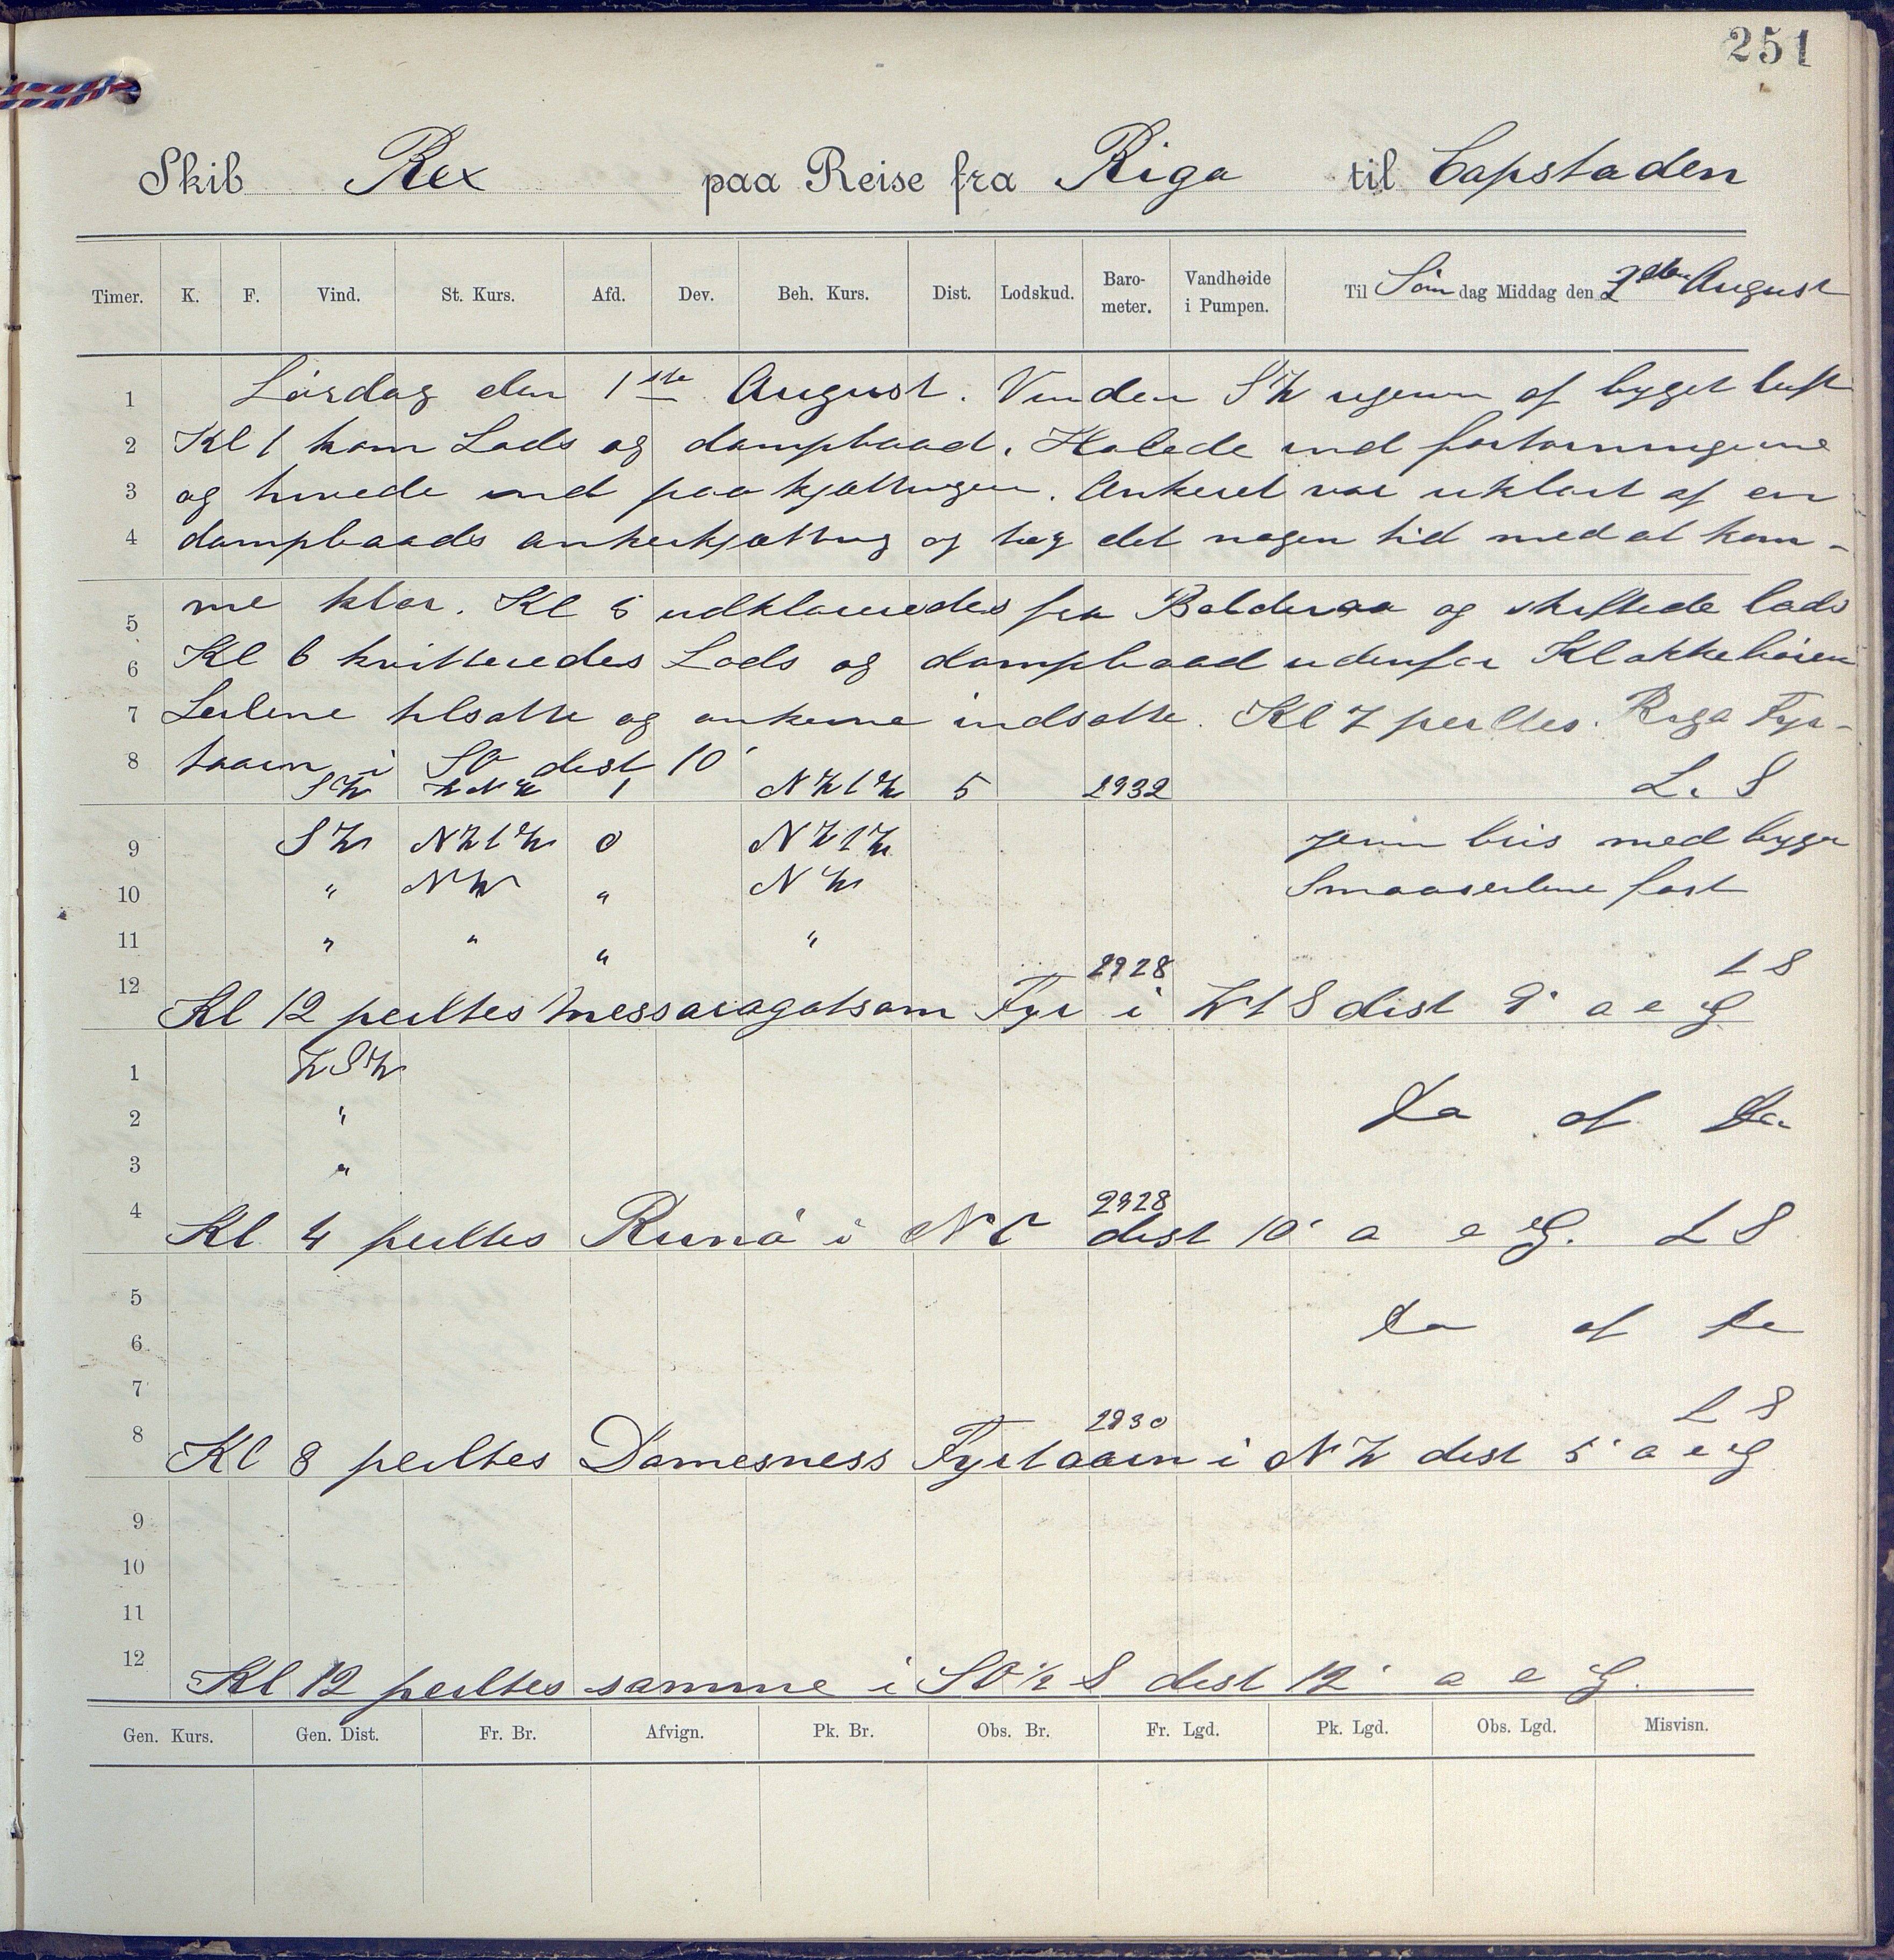 251
Skib Rex paa Reise fra Riga til Capstaden
Timer. K. F. Vind. St. Kurs. Afd. Dev. Beh. Kurs. Dist. Lodskud. Barometer. Vandhøide i Pumpen. Til Søndag Middag den 2den August
1 Lørdag den 1ste August. Vinden SW af byget luft
2 Kl 1 kom Lods og dampbaad. Halede ind fortøiningerne
3 og hivede ind paa kjættingen. Ankeret var uklart af en
4 dampbaads ankerkjætting og tog det nogen tid med at kom-
5 me klar. Kl 5 udklareredes fra Balderaa og skiftede lods
6 Kl 6 kvitteredes Lods og dampbaad udenfor Klokkebøien
7 Seilene tilsatte og ankerne indsatte. Kl 7 peiltes Riga Fyr-
8 taarn i SO dist 10'
SW WNW 1 NW t W 5 2932 L. S
9 SW NW t W 0 NW t W jevn bris med byger
10 " NW " NW Smaaseilene fast
11 " " " "
2928 L S
12 Kl 12 peiltes Messaragotsem Fyr i W t S dist 9' a e G
1 WSW
2 " Da of Da.
3 "
2928
4 Kl 4 peiltes Runø i NO dist 10' a e G. L S
5
6 Da of Da
7
2930 L S
8 Kl 8 peiltes Domesness Fyrtaarn i NW dist 5' a e G
9
10
11
12 Kl 12 peiltes samme i SO 1/2 S dist 12' a e G.
Gen. Kurs. Gen. Dist. Fr. Br. Afvign. Pk. Br. Obs. Br. Fr. Lgd. Pk. Lgd. Obs. Lgd. Misvisn.